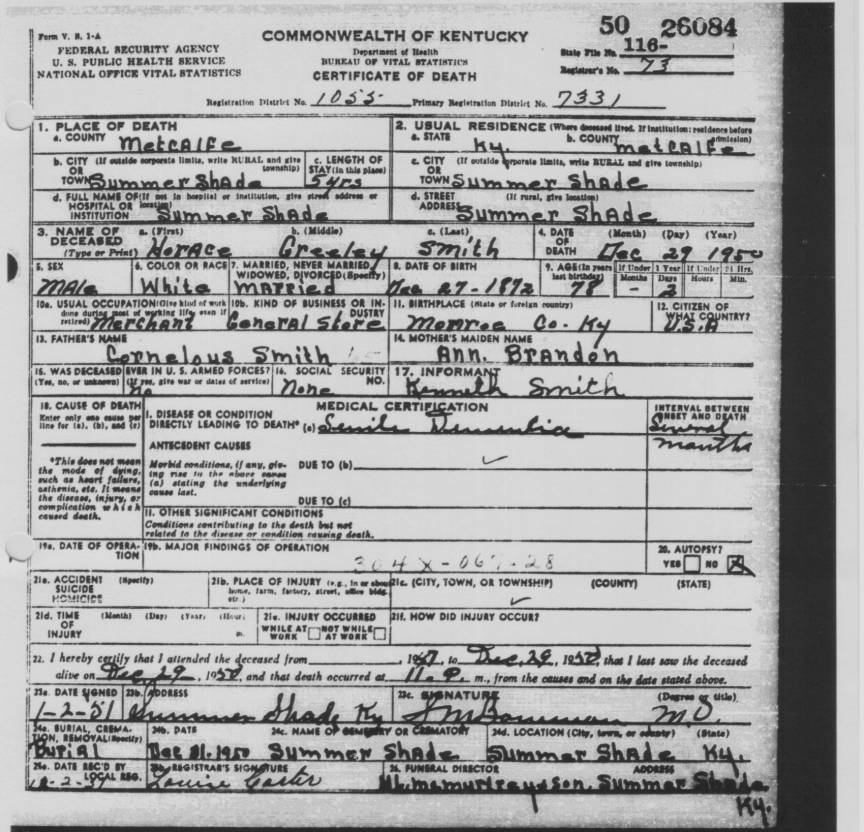 50 26084
Form V. S. 1-A
COMMONWEALTH OF KENTUCKY
FEDERAL SECURITY AGENCY
Department of Health
State File No. 116-
U. S. PUBLIC HEALTH SERVICE
BUREAU OF VITAL STATISTICS
Registrar's No. 73
NATIONAL OFFICE VITAL STATISTICS
CERTIFICATE OF DEATH
Registration District No. 1055 Primary Registration District No. 7331
1. PLACE OF DEATH
a. COUNTY Metcalfe
2. USUAL RESIDENCE (Where deceased lived. If institution: residence before admission)
a. STATE Ky. b. COUNTY Metcalfe
b. CITY (If outside corporate limits, write RURAL and give township) OR TOWN Summer Shade
c. LENGTH OF STAY (in this place) 54rs
c. CITY (If outside corporate limits, write RURAL and give township) OR TOWN Summer Shade
d. FULL NAME OF (If not in hospital or institution, give street address or location) HOSPITAL OR INSTITUTION Summer Shade
d. STREET ADDRESS (If rural, give location) Summer Shade
3. NAME OF DECEASED (Type or Print) a. (First) Horace b. (Middle) Greeley c. (Last) Smith
4. DATE OF DEATH (Month) (Day) (Year) Dec 29 1950
5. SEX Male
6. COLOR OR RACE White
7. MARRIED, NEVER MARRIED, WIDOWED, DIVORCED (Specify) Married
8. DATE OF BIRTH Dec 27-1872
9. AGE (In years last birthday) 78 If Under 1 Year Months - Days 2 If Under 24 Hrs. Hours Min.
10a. USUAL OCCUPATION (Give kind of work done during most of working life, even if retired) Merchant
10b. KIND OF BUSINESS OR INDUSTRY General Store
11. BIRTHPLACE (State or foreign country) Monroe Co. Ky
12. CITIZEN OF WHAT COUNTRY? U.S.A
13. FATHER'S NAME Cornelous Smith
14. MOTHER'S MAIDEN NAME Ann. Brandon
15. WAS DECEASED EVER IN U. S. ARMED FORCES? (Yes, no, or unknown) (If yes, give war or dates of service) No
16. SOCIAL SECURITY NO. None
17. INFORMANT Kenneth Smith
18. CAUSE OF DEATH
Enter only one cause per line for (a), (b), and (c)
MEDICAL CERTIFICATION
I. DISEASE OR CONDITION DIRECTLY LEADING TO DEATH* (a) Senile Dementia
INTERVAL BETWEEN ONSET AND DEATH Several months
*This does not mean the mode of dying, such as heart failure, asthenia, etc. It means the disease, injury, or complication which caused death.
ANTECEDENT CAUSES
Morbid conditions, if any, giving rise to the above cause (a) stating the underlying cause last.
DUE TO (b)
DUE TO (c)
II. OTHER SIGNIFICANT CONDITIONS
Conditions contributing to the death but not related to the disease or condition causing death.
19a. DATE OF OPERATION
19b. MAJOR FINDINGS OF OPERATION
304X-067-28
20. AUTOPSY? YES NO
21a. ACCIDENT SUICIDE HOMICIDE (Specify)
21b. PLACE OF INJURY (e.g., in or about home, farm, factory, street, office bldg. etc.)
21c. (CITY, TOWN, OR TOWNSHIP) (COUNTY) (STATE)
21d. TIME OF INJURY (Month) (Day) (Year) (Hour) m.
21e. INJURY OCCURRED WHILE AT WORK NOT WHILE AT WORK
21f. HOW DID INJURY OCCUR?
22. I hereby certify that I attended the deceased from , 1947, to Dec. 29, 1950, that I last saw the deceased
alive on Dec 29, 1950, and that death occurred at 11. P. m., from the causes and on the date stated above.
23a. DATE SIGNED 1-2-51
23b. ADDRESS Summer Shade Ky
23c. SIGNATURE Bowman (Degree or title) M.D.
24a. BURIAL, CREMATION, REMOVAL (Specify) Burial
24b. DATE Dec 31. 1950
24c. NAME OF CEMETERY OR CREMATORY Summer Shade
24d. LOCATION (City, town, or county) (State) Summer Shade Ky.
25a. DATE REC'D BY LOCAL REG.
25b. REGISTRAR'S SIGNATURE Louise Carter
26. FUNERAL DIRECTOR ADDRESS
McMurtrey & son, Summer Shade
Ky.